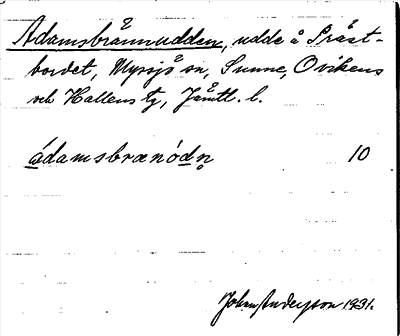 Adamsbrånnudden, udde å Präst-
bordet, Myssjö sn, Sunne, Ovikens
och Hallens tg, Jämtl. l.
ádamsbrænódn̥ 10
Johan Anderson 1931.